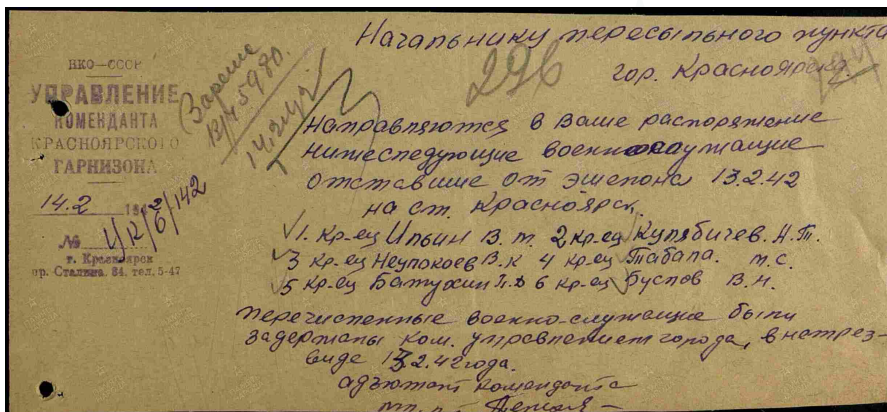 НКО—СССР
УПРАВЛЕНИЕ
КОМЕНДАНТА
КРАСНОЯРСКОГО
ГАРНИЗОНА
14.2 1942
№ 1/12/б/142
г. Красноярск
пр. Сталина. 84. тел. 5-47
14.2.42г.
296
Начальнику пересыльного пункта
гор. Красноярска
Направляются в Ваше распоряжение
нижеследующие военнослужащие
отставшие от эшелона 13.2.42
на ст. Красноярск.
1. Кр-ец Ильин В. т. 2 Кр-ец Кулябичев. А.Т.
3 Кр-ец Неупокоев В.К 4 Кр-ец Табала. М.С.
5 Кр-ец Батухин П.Д 6 Кр-ец Буслов В.Н.
перечисленные военно-служащие были
задержаны ком. управлением города, в натрез-
виде 13.2.42года.
адъютант коменданта